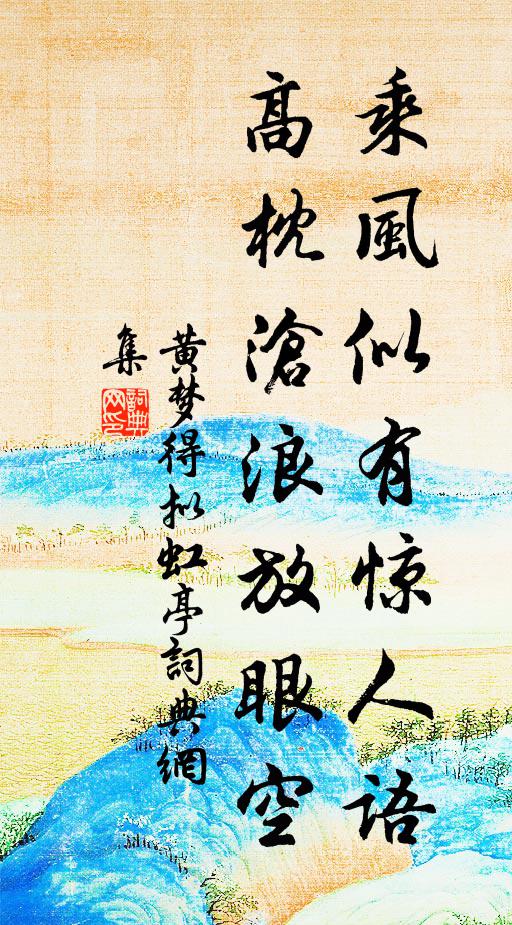 乘風似有惊人語
高枕滄浪放眼空
黄梦得拟虹亭詞典網
集
詞典
网印